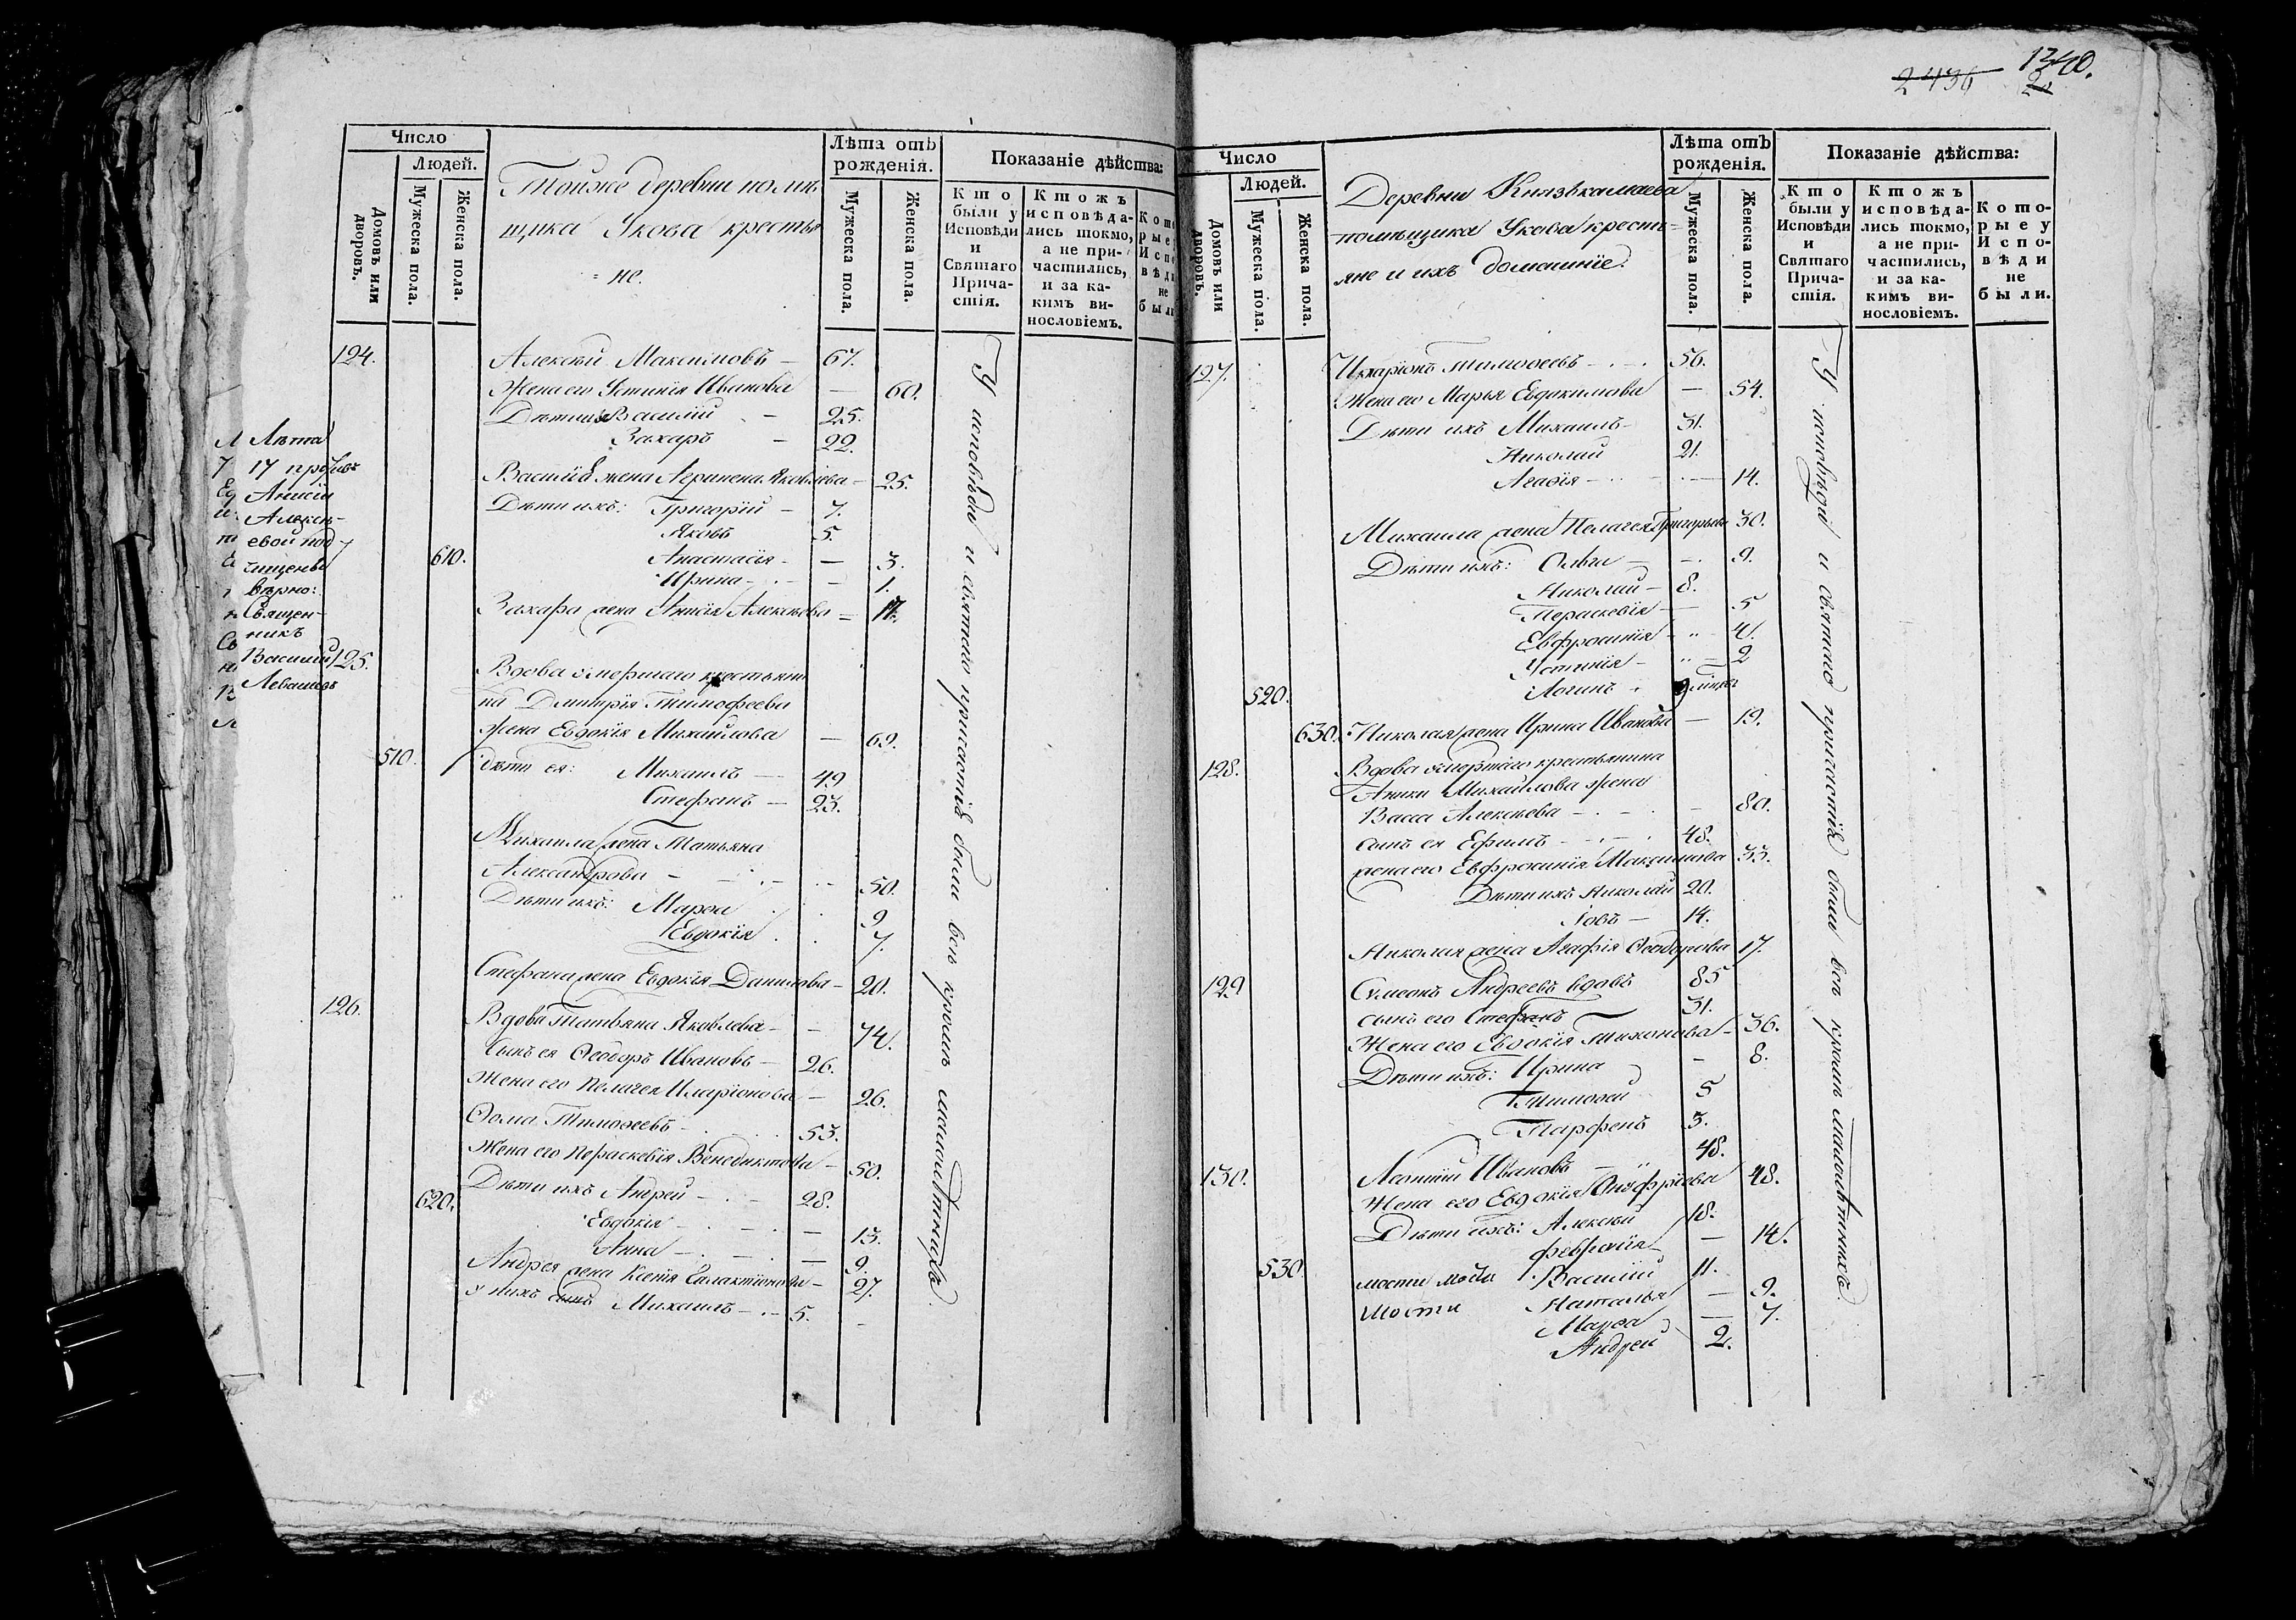 2436
1340.
2
Число
Людей.
Домовъ или дворовъ.
Мужеска пола.
Женска пола.
Тойже деревни помѣ
щика Якова крестья
=не.
Лѣта отъ рожденія.
Мужеска пола.
Женска пола.
Показаніе дѣйства:
Кто были у Исповѣди и Святаго Причастія.
Ктожъ исповѣдались токмо, а не причастились, и за какимъ винословіемъ.
124. Алексѣй Максимовъ — 67.
Жена его Устинія Иванова — 60.
Дѣти ихъ Василій — 25.
Захаръ — 22.
Василія жена Агрипена Яковлева — 25.
Дѣти ихъ: Григорій — 7.
Яковъ 5.
610. Анастасія — — 3.
Ирина — — 1.
Захара жена Анисія Алексѣева = 17.
Лѣта
17 противъ
Анисіи
Алексѣ-
евой под
чищены
вѣрно:
Священ-
никъ
Василий
Левашевъ
125. Вдова умершаго крестьяни
на Дмитрія Тимофеева
жена Евдокія Михайлова — 69.
510. дѣти ея: Михаилъ — 49
Стефанъ — 23.
Михаила жена Татьяна
Александрова — 50.
Дѣти ихъ: Марѳа 9
Евдокія 7.
Стефана жена Евдокія Данилова — 20.
126. Вдова Татьяна Яковлева — — 74.
Сынъ ея Ѳеодоръ Ивановъ — 26.
Жена его Пелагея Иларіонова — 26.
Ѳома Тимоѳеевъ — 53.
Жена его Пераскевія Венедиктова — 50.
Дѣти ихъ Андрей — 28.
620. Евдокія — — 13.
Анна — — 9.
Андрея жена Ксенія Галактіонова — 27.
у нихъ сынъ Михаилъ — 5.
У исповѣди и святаго причастія были всѣ кромѣ малолѣтныхъ.
Число
Людей.
Домовъ или дворовъ.
Мужеска пола.
Женска пола.
Деревни Князькамаева
помѣщика Якова кресть=
яне и ихъ домашніе.
Лѣта отъ рожденія.
Мужеска пола.
Женска пола.
Показаніе дѣйства:
Кто были у Исповѣди и Святаго Причастія.
Ктожъ исповѣдались токмо, а не причастились, и за какимъ винословіемъ.
Которые у Исповѣди не были.
127. Иларіонъ Тимоѳеевъ — 56.
Жена его Марья Евдокимова — 54.
Дѣти ихъ Михаилъ — 31.
Николай 21.
Агаѳія — — 14.
Михаила жена Пелагея Григорьева 30.
Дѣти ихъ: Ольга — — 9.
Николай — 8.
Пераскевія — 5
Евфросинія — 4.
Устинія — — 2
520. Логинъ
630. Николая жена Ирина Иванова — 19.
128. Вдова умершаго крестьянина
Аники Михайлова жена
Васса Алексѣева — — 80.
сынъ ея Ефимъ — 48.
жена его Евфросинія Максимова 33.
Дѣти ихъ Николай 20.
Іовъ — 14.
Николая жена Агафія Ѳеодорова 17.
129 Сѵмеонъ Андреевъ вдовъ 85
сынъ его Стефанъ 31.
Жена его Евдокія Тихонова — 36.
Дѣти ихъ: Ирина — 8.
Тимоѳей 5
Парфенъ 3.
130. Леонтій Ивановъ — 48.
Жена его Евдокія Онофріева 48.
Дѣти ихъ: Алексѣй 18.
Февронія — 14.
530. Василій 11.
Наталья — 9.
Марѳа — 7.
Андрей 2.
У исповѣди и святаго причастія были всѣ кромѣ малолѣтныхъ.